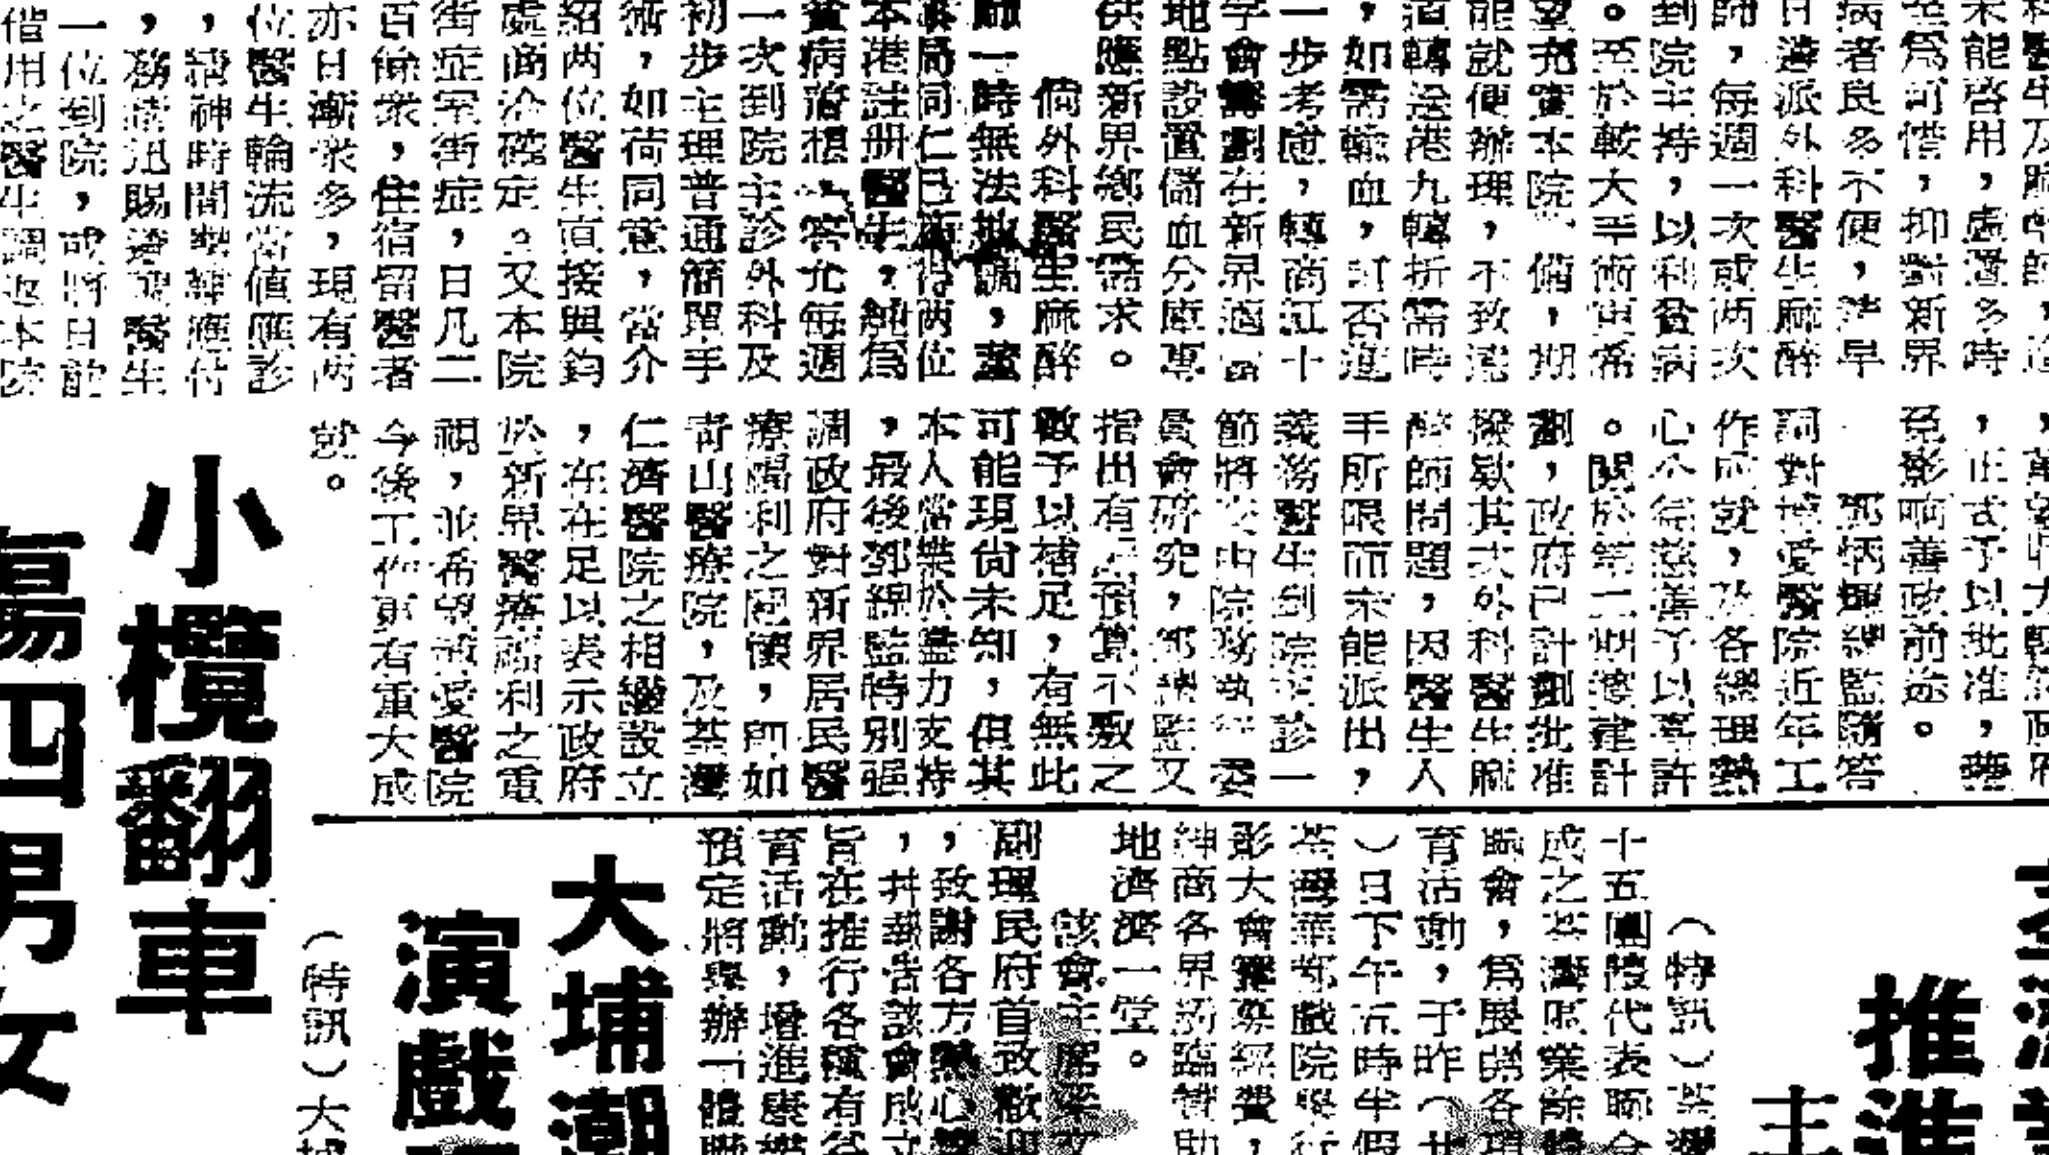 未能啓用,虛置多時
至爲可惜,抑對新界
病者良多不便,請早
日遴派外科醫生麻醉
師,每週一次或两次
到院主持,以利貧病
。至於較大手術更希
望充實本院設備,期
能就便辦理,不致遠
道轉送港九轉折需時
,如需輸血,可否進
一步考慮,轉商紅十
字會籌劃在新界適當
地點設置儲血分庫專
供應新界鄉民需求。
倘外科醫生麻醉
師一時無法抽調,董
事局同仁已商得两位
本港註册醫生,純爲
貧病着想,答允每週
一次到院主診外科及
初步主理普通簡單手
術,如荷同意,當介
紹两位醫生直接與鈞
處商洽確定。又本院
街症室街症,日凡二
百餘衆,住宿留醫者
亦日漸衆多,現有两
位醫生輪流當值應診
,精神時間難應付
,務請迅賜遴派醫生
一位到院,或將日前
借用之醫生調返本院
,正式予以批准,藉
免影响善政前途。
鄧炳輝總監隨答
詞對博愛醫院近年工
作成就,及各總理熱
心公益慈善予以嘉許
。關於第二期擴建計
劃,政府已計劃批准
撥欵其次外科醫生麻
醉師問題,因醫生人
手所限而未能派出,
義務醫生到院主診一
節將交由院務執行委
員會研究,鄧總監又
指出有預算不敷之
欵予以補足,有無此
可能現尚未知,但其
本人當樂於盡力支持
,最後鄧總監特別强
調政府對新界居民醫
療福利之關懷,即如
青山醫療院,及荃灣
仁濟醫院之相繼設立
,在在足以表示政府
於新界醫療福利之重
視,並希望博愛醫院
今後工作更有重大成
就。
小欖翻車
傷四男女
推進
主
(特訊)荃灣
十五團體代表聯合
成之荃灣區業餘體
聯會,爲展開各項
育活動,于昨(廿
)日下午五時半假
荃灣華都戲院舉行
彭大會籌募經費,
紳商各界蒞臨贊助
地濟濟一堂。
該會主席梁
副理民府首致歡迎
,致謝各方熱心
,并報告該會成立
旨在推行各種有益
育活動,增進康樂
預定將舉辦一體聯
大埔潮
演戲
(特訊)大埔